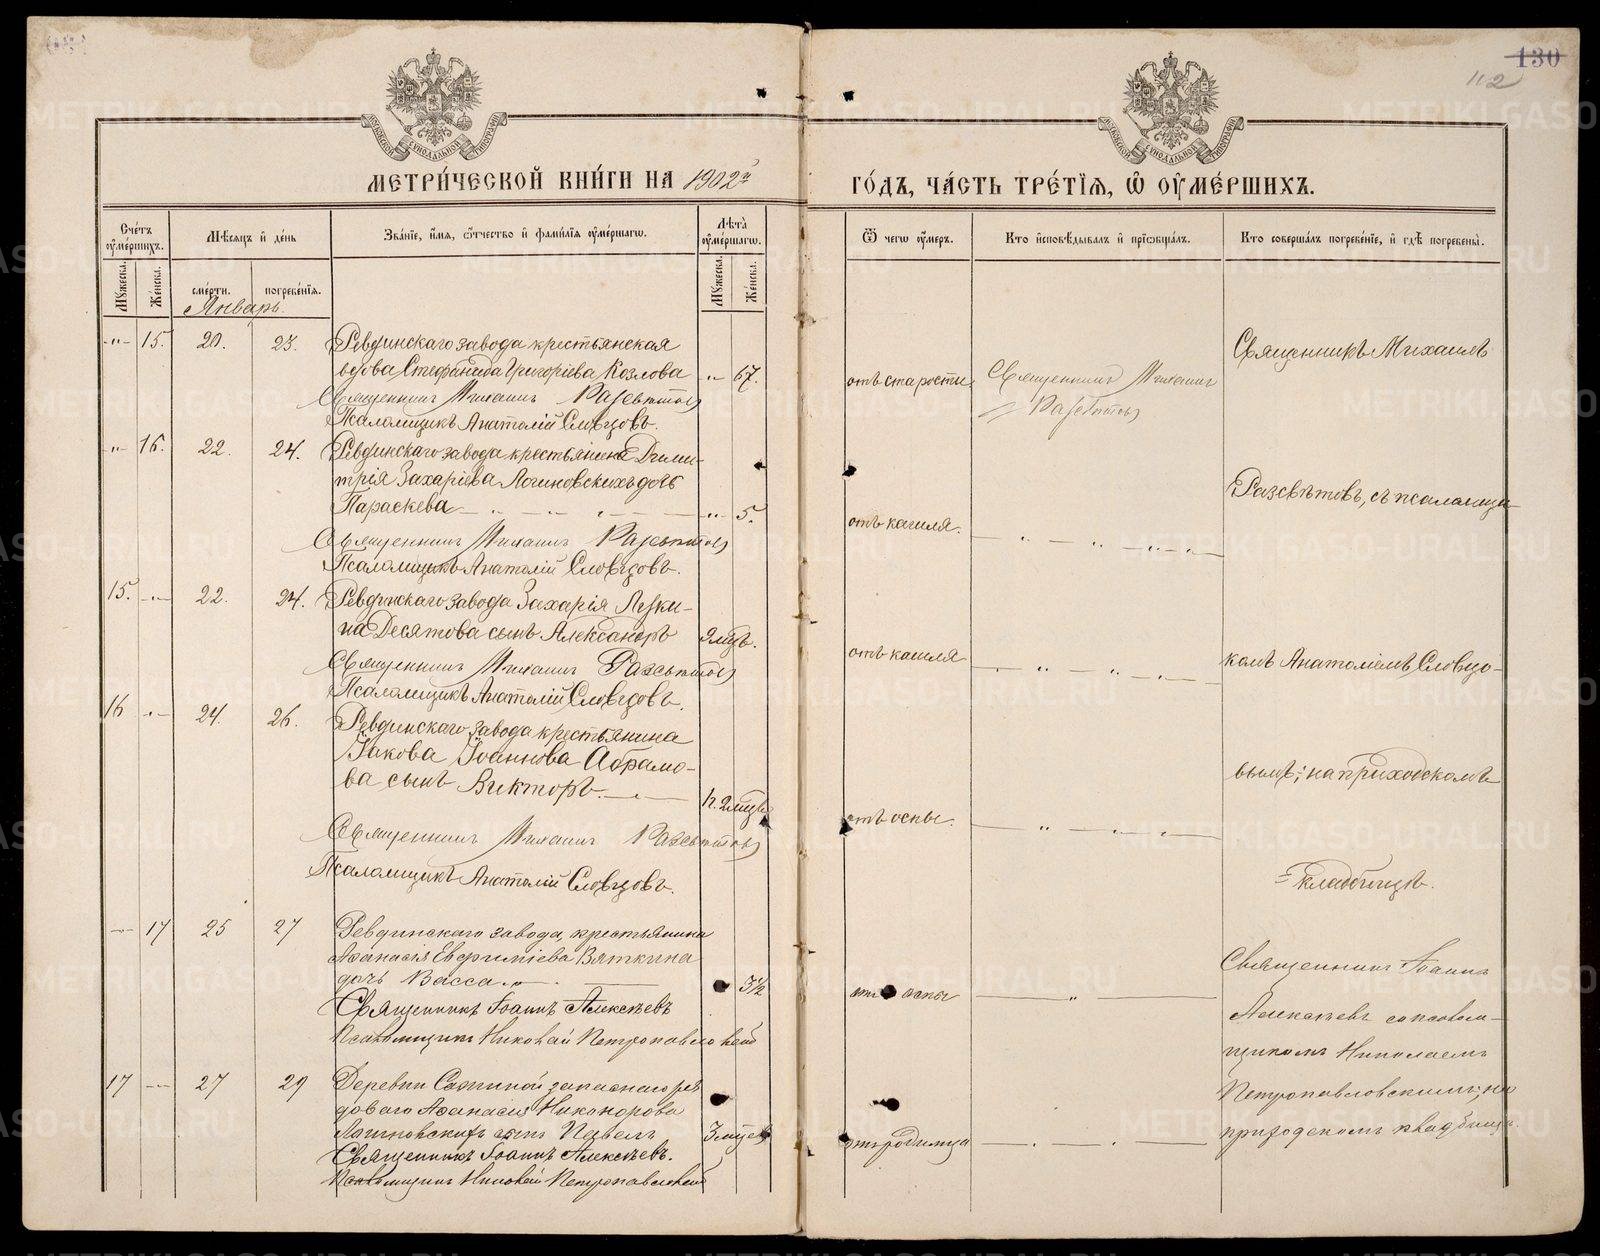 130
112
МЕТРИ́ЧЕСКОЙ КНИ́ГИ НА 1902й ГО́ДЪ, ЧА́СТЬ ТРЕ́ТІѦ, Ѡ ОУ҆МЕ́РШИХЪ.
Сче́тъ оу҆ме́ршихъ.
Мꙋ́жеска.
Же́нска.
Мѣ́сѧцъ и҆ де́нь
сме́рти.
погребе́нїѧ.
Зва́нїе, и҆́мѧ, ѻ҆́тчество и҆ фами́лїѧ оу҆ме́ршагѡ.
Лѣ́та оу҆ме́ршагѡ.
Мꙋ́жеска.
Же́нска.
Ѿ чегѡ̀ оу҆́меръ.
Кто̀ и҆сповѣ́дывалъ и҆ прїѡбща́лъ.
Кто̀ соверша́лъ погребе́нїе, и҆ гдѣ̀ погребены̀.
Январь.
-"- 15. 20. 23. Ревдинскаго завода крестьянская
вдова Стефанида Григоріева Козлова -"- 67. отъ старости
Священникъ Михаилъ Разсвѣтовъ
Псаломщикъ Анатолій Словцовъ.
Священникъ Михаилъ
Разсвѣтовъ
Священникъ Михаилъ
-"- 16. 22. 24. Ревдинскаго завода крестьянина Дими-
трія Захаріева Логиновскихъ дочь
Параскева -"- 5. отъ кашля.
Священникъ Михаилъ Разсвѣтовъ
Псаломщикъ Анатолій Словцовъ.
Разсвѣтовъ, съ псаломщи-
15. -"- 22. 24. Ревдинскаго завода Захарія Луки-
на Десятова сынъ Александръ 2 мцъ. отъ кашля
Священникъ Михаилъ Разсвѣтовъ
Псаломщикъ Анатолій Словцовъ.
комъ Анатоліемъ Словцо-
16 -"- 24. 26. Ревдинскаго завода крестьянина
Іакова Іоаннова Абрамо-
ва сынъ Викторъ. 2 мцъ отъ оспы.
Священникъ Михаилъ Разсвѣтовъ
Псаломщикъ Анатолій Словцовъ.
вымъ; на приходскомъ
кладбищѣ.
-"- 17 25 27 Ревдинскаго завода, крестьянина
Аѳанасія Евфиміева Вяткина
дочь Васса. 3½ отъ оспы
Священникъ Іоаннъ Алексѣевъ
Псаломщикъ Николай Петропавловскій
Священникъ Іоаннъ
Алексѣевъ съ псалом-
щикомъ Николаемъ
Петропавловскимъ; на
приходскомъ кладбищѣ.
17 -"- 27 29 Деревни запаснаго ря
доваго Аѳанасія Никанорова
Логиновскихъ сынъ Павелъ 3 мцев отъ родимца
Священникъ Іоаннъ Алексѣевъ.
Псаломщикъ Николай Петропавловскій
METRIKI.GASO-URAL.RU